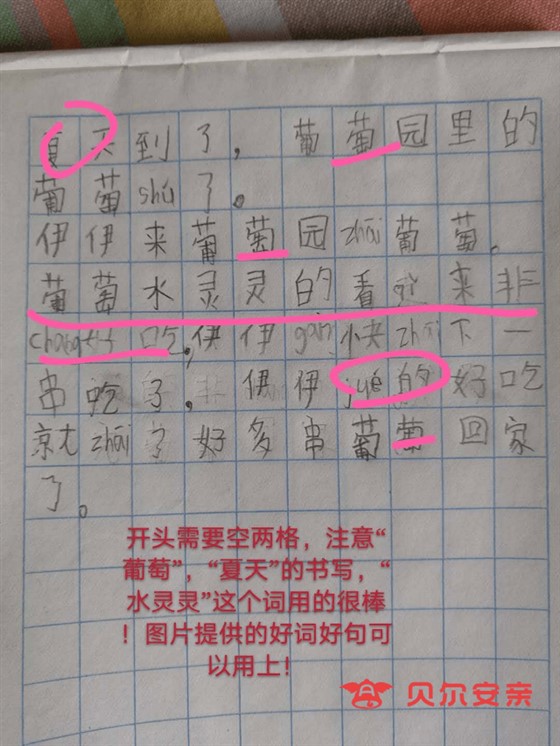 夏天到了,葡萄园里的
葡萄shú了。
伊伊来葡萄园zhāi葡萄。
葡萄水灵灵的看起来非
cháng好吃,伊伊gǎn快zhāi下一
串吃了,伊伊jué的好吃
就zhāi了好多串葡萄回家
了。
开头需要空两格,注意“
葡萄”,“夏天”的书写,“
水灵灵”这个词用的很棒
!图片提供的好词好句可
以用上!
贝尔安亲